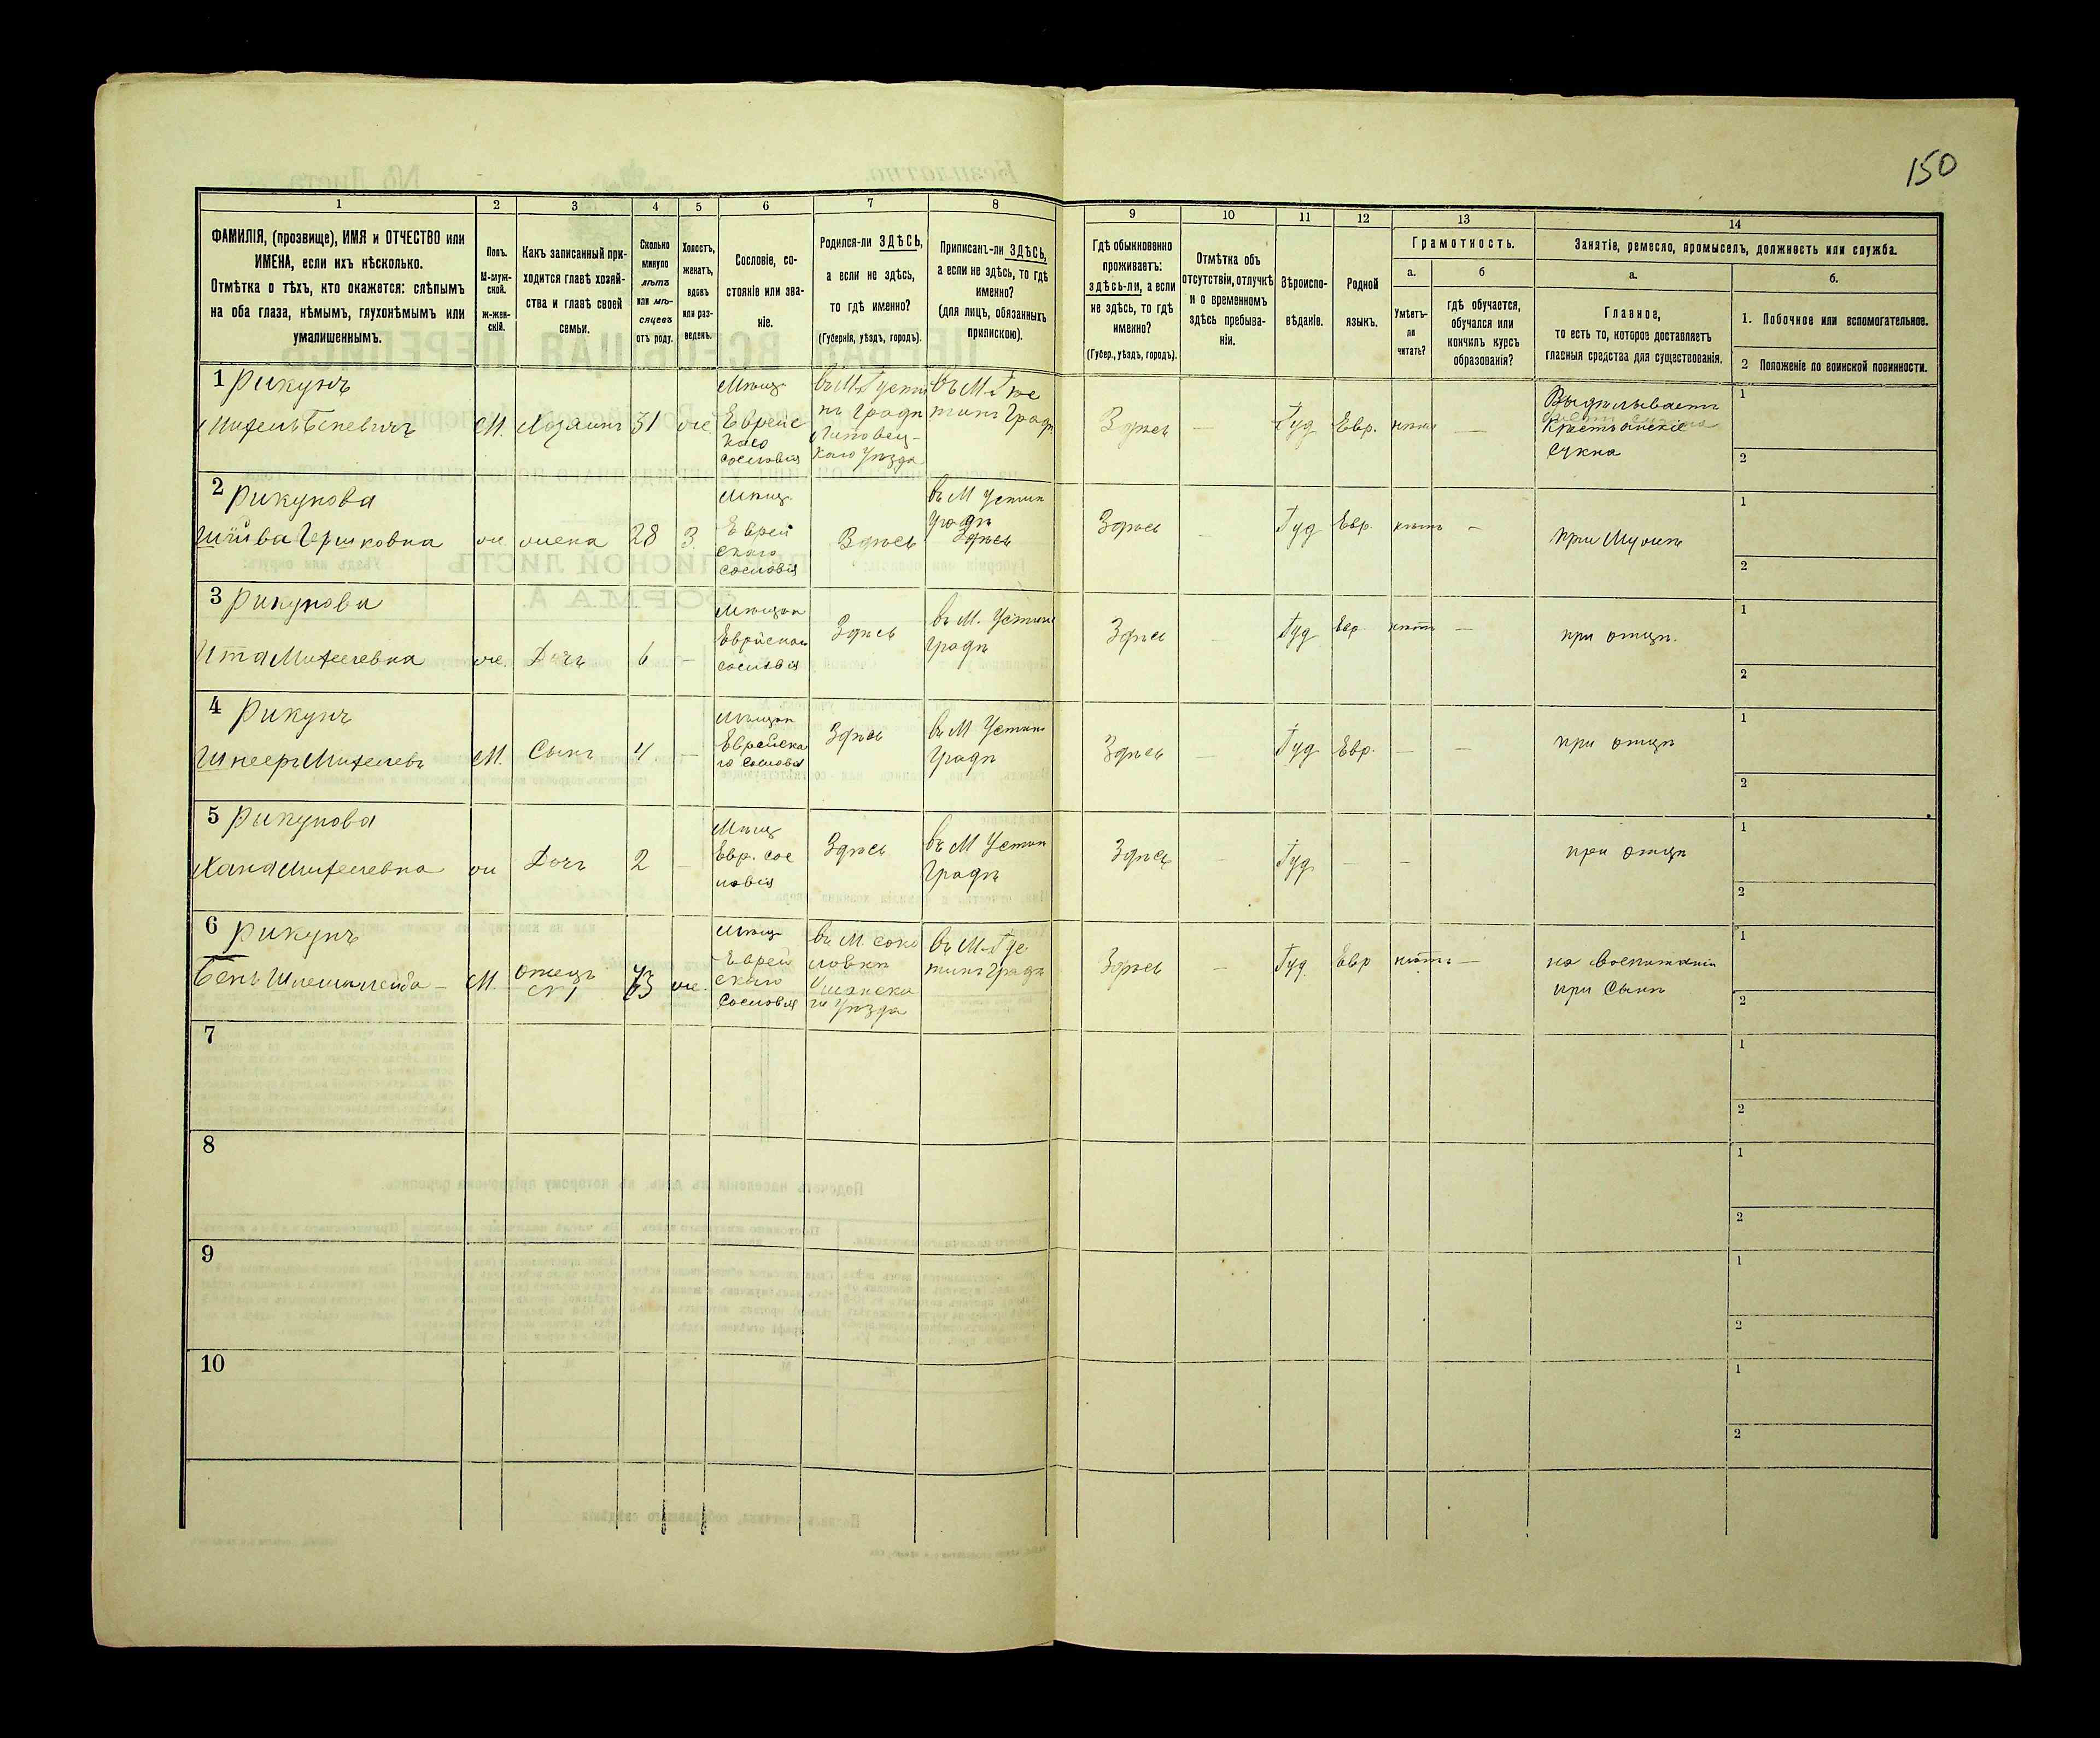 150
1
2
3
4
5
6
7
8
9
10
11
12
13
14
ФАМИЛІЯ, (прозвище), ИМЯ и ОТЧЕСТВО или
ИМЕНА, если ихъ нѣсколько.
Отмѣтка о тѣхъ, кто окажется: слѣпымъ
на оба глаза, нѣмымъ, глухонѣмымъ или
умалишеннымъ.
Полъ.
М-муж-
ской.
ж-жен-
скій.
Какъ записанный при-
ходится главѣ хозяй-
ства и главѣ своей
семьи.
Сколько
минуло
лѣтъ
или мѣ-
сяцевъ
отъ роду.
Холостъ,
женатъ,
вдовъ
или раз-
веденъ.
Сословіе, со-
стояніе или зва-
ніе.
Родился-ли ЗДѢСЬ,
а если не здѣсь,
то гдѣ именно?
(Губернія, уѣздъ, городъ).
Приписанъ-ли ЗДѢСЬ,
а если не здѣсь, то гдѣ
именно?
(для лицъ, обязанныхъ
припискою).
Гдѣ обыкновенно
проживаетъ:
здѣсь-ли, а если
не здѣсь, то гдѣ
именно?
(Губер., уѣздъ, городъ).
Отмѣтка объ
отсутствіи, отлучкѣ
и о временномъ
здѣсь пребыва-
ніи.
Вѣроиспо-
вѣданіе.
Родной
языкъ.
Грамотность.
а.
б
Умѣетъ-
ли
читать?
гдѣ обучается,
обучался или
кончилъ курсъ
образованія?
Занятіе, ремесло, промыселъ, должность или служба.
а.
б.
Главное,
то есть то, которое доставляетъ
главныя средства для существованія.
1. Побочное или вспомогательное.
2 Положеніе по воинской повинности.
1 Рикунъ
М. Хозяинъ 31 Мѣщ. Еврейс
каго
сословія
Липовец-
каго уѣзда
Здѣсь — Іуд Евр. —
Выдѣлываетъ
Крестьянскіе
сукна
1
2
2 Рикунова
Гершковна жена 28 З. Мѣщ.
Еврей
скаго
сословія
Здѣсь
въ М Устин
градѣ
Здѣсь
Здѣсь — Іуд Евр. нѣтъ —
при Мужѣ
1
2
3 Рикунова
Ита Михелевна Дочь 6 —
Еврейскаго
сословія
Здѣсь
въ М. Устин
градѣ
Здѣсь — Іуд Евр нѣтъ —
при отцѣ.
1
2
4 Рикунъ
Шнееръ Михелевъ М. Сынъ 4 —
Еврейска
го сословія
Здѣсь
въ М Устин
градѣ
Здѣсь — Іуд Евр. — —
при отцѣ
1
2
5 Рикунова
Хана Михелевна Дочь 2 — Мѣщ
Евр. сос
ловія
Здѣсь
въ М Устин
градѣ
Здѣсь — Іуд — —
при отцѣ
1
2
6 Рикунъ
М. отецъ Мѣщ
Еврей
скаго
Сословія
въ М. Соко
ловкѣ
Уманска
го уѣзда
Здѣсь — Іуд. Евр нѣтъ —
на воспитаніи
при Сынѣ
1
2
7
1
2
8
1
2
9
1
2
10
1
2